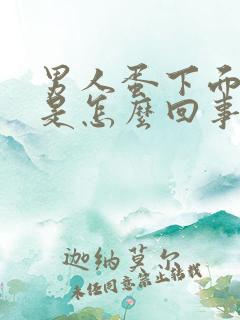 男人蛋下面
是怎麼回事
迦纳莫尔
未经同意禁止转载